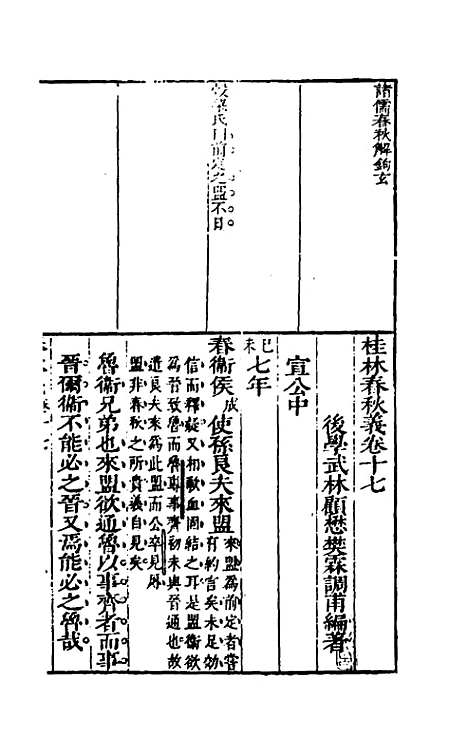 諸儒春秋解鉤玄
穀梁氏曰前定之盟不日
桂林春秋義卷十七
後學武林顧懋樊霖調甫編著
宣公中
己未七年
春衛侯成使孫良夫來盟來盟為前定者嘗有約言矣未足効
信而釋疑又相歃血固結之耳是盟衛欲
為晉致魯而魯專事齊初未與晉通也故
遣良夫來為此盟而公卒見辱
盟非春秋之所貴義自見矣
魯衛兄弟也來盟欲通魯以事齊者而事
晉爾衛不能必之晉又焉能必之魯哉